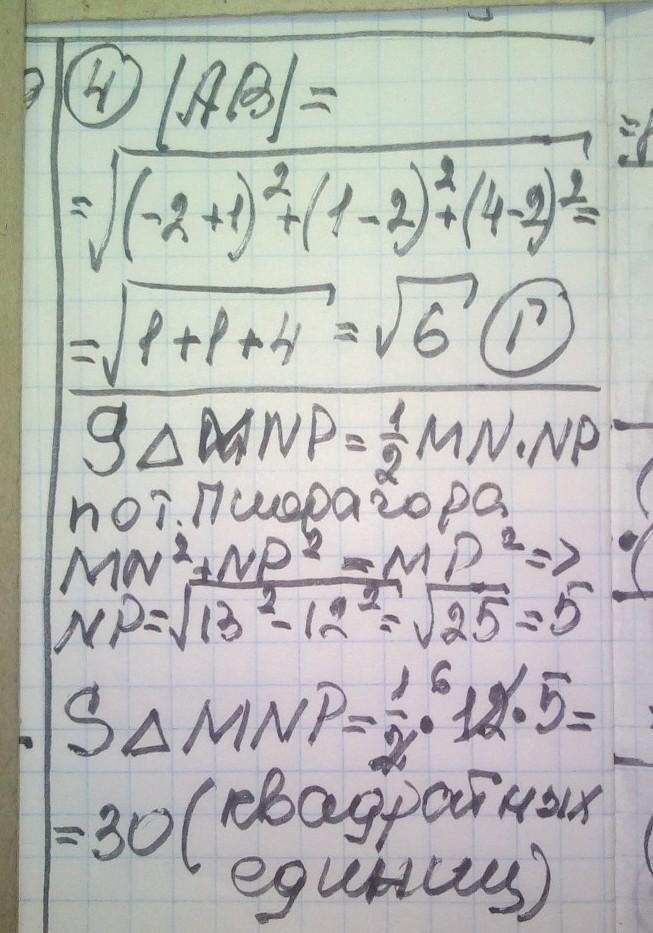 4 |AB|=
=√(-2+1)²+(1-2)²+(4-2)²=
=√1+1+4=√6 Г
S△MNP=½MN·NP
по т. Пифагора
MN²+NP²=MP²=>
NP=√13²-12²=√25=5
S△MNP=1/2·12⁶·5=
=30(квадратных
единиц)